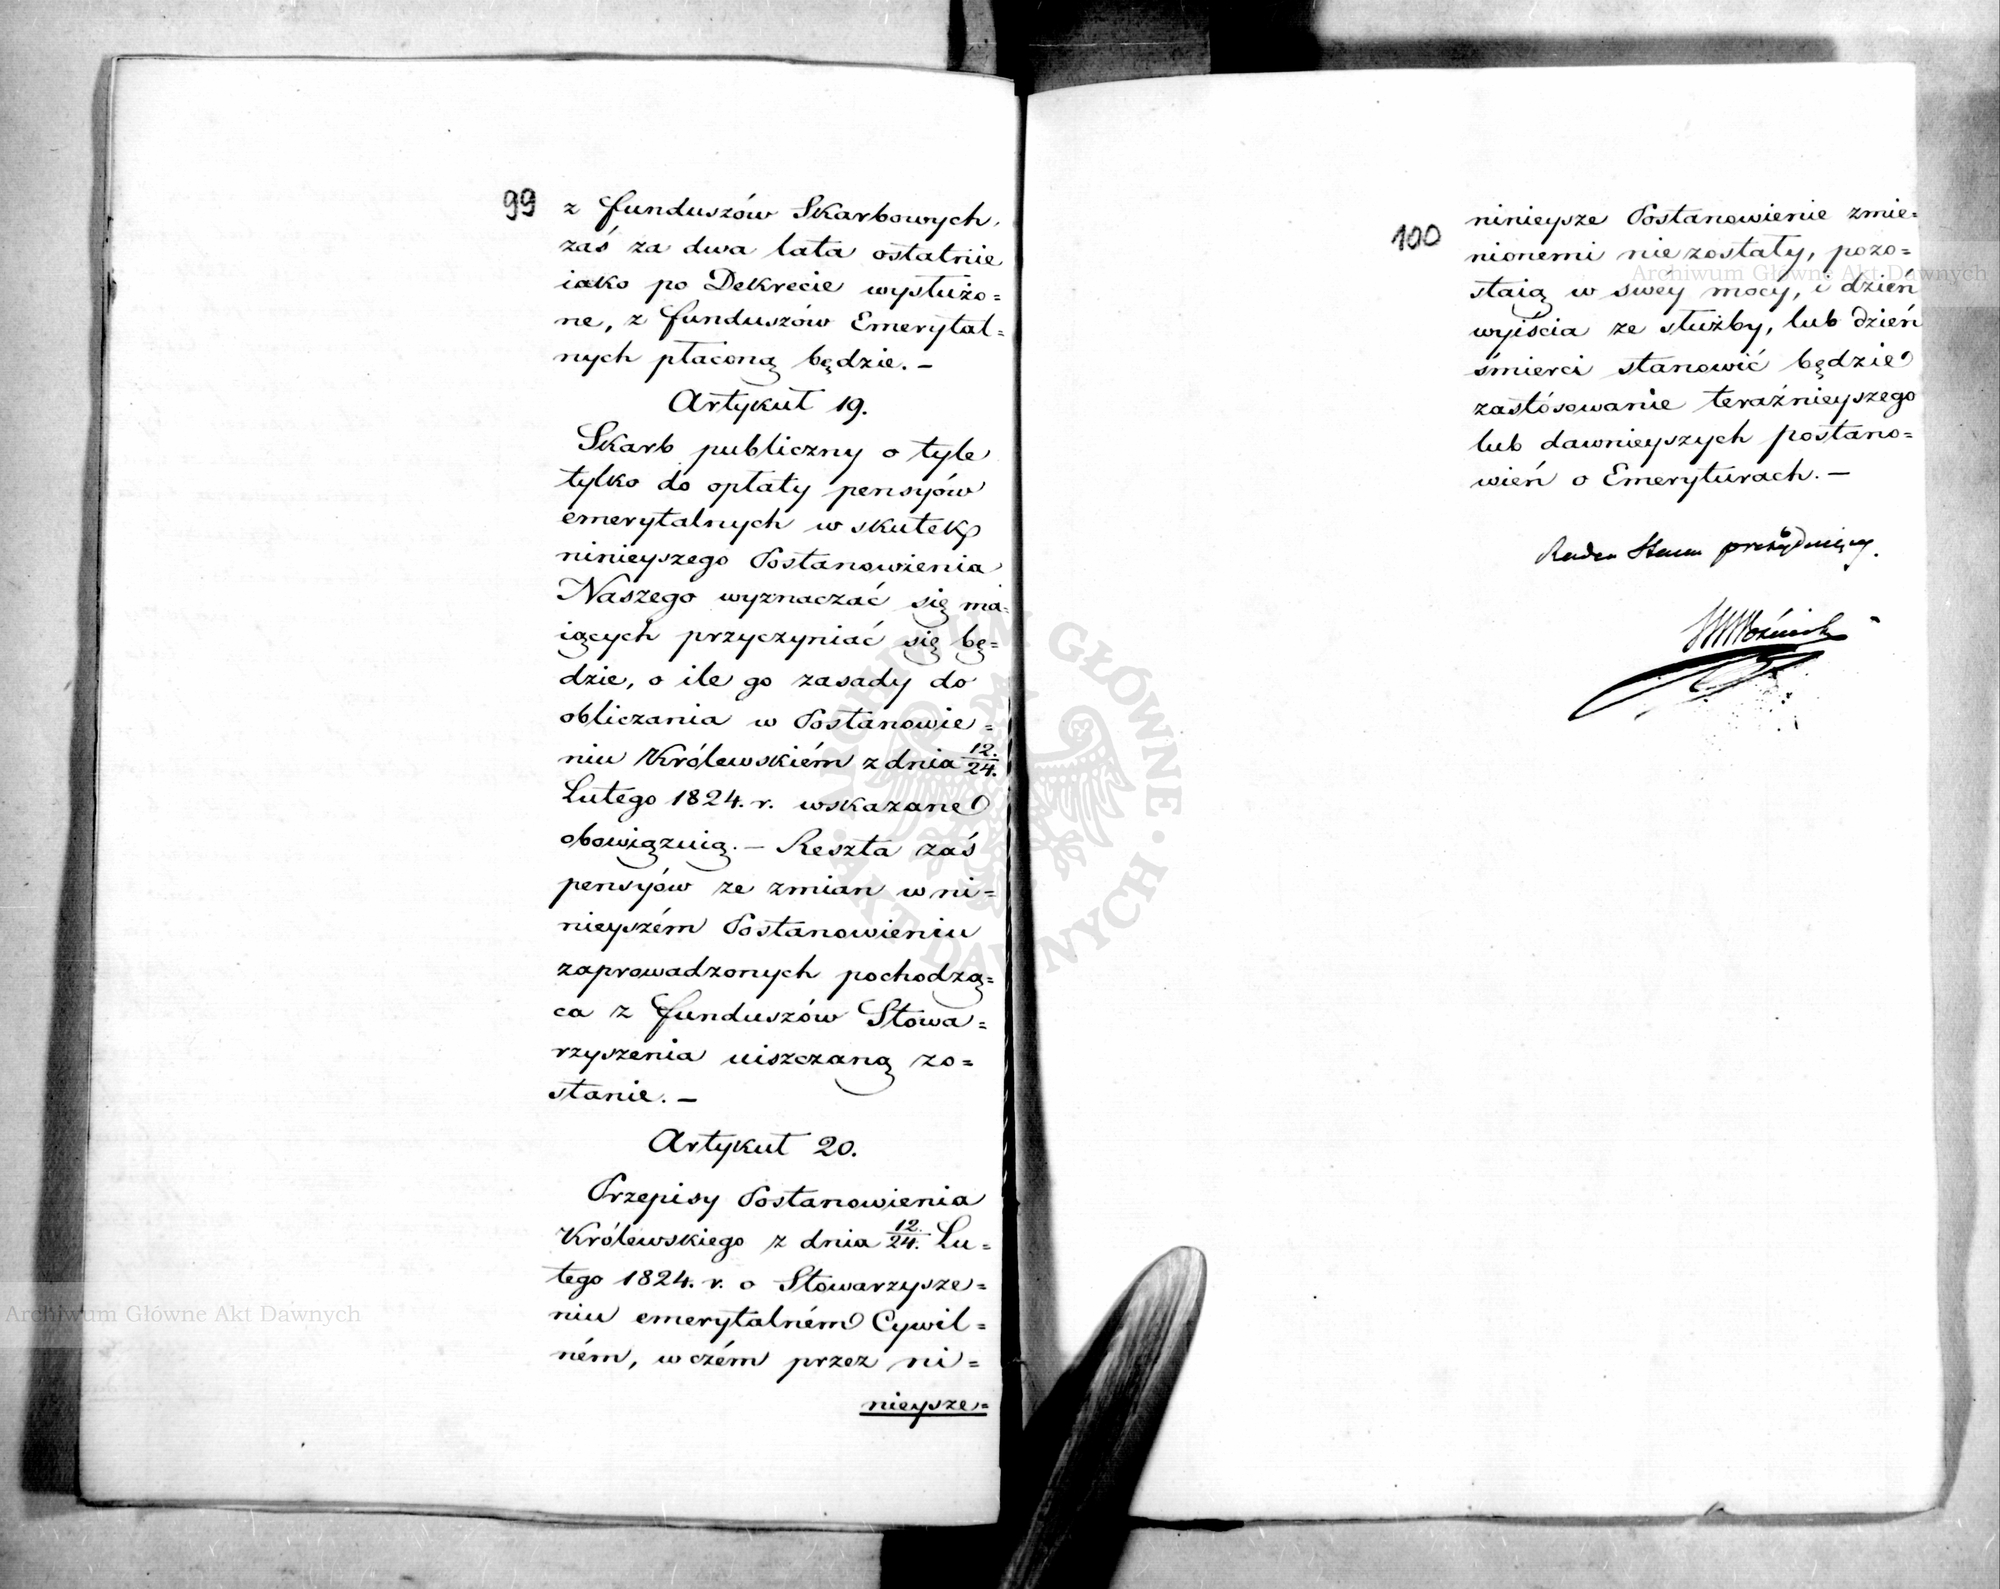 99
z funduszów Skarbowych,
zaś za dwa lata ostatnie
iako po Dekrecie wysłużo=
ne, z funduszów Emerytal=
nych płaconą będzie. —
Artykuł 19.
Skarb publiczny o tyle
tylko do opłaty pensyów
emerytalnych w skutek
ninieyszego Postanowienia
Naszego wyznaczać się ma=
iących przyczyniać się bę=
dzie, o ile go zasady do
obliczania w Postanowie=
niu Królewskiém z dnia 12./24.
Lutego 1824. r. wskazane
obowiązuią. — Reszta zaś
pensyów ze zmian w ni=
nieyszém Postanowieniu
zaprowadzonych pochodzą=
ca z funduszów Stowa=
rzyszenia uiszczaną zo=
stanie. —
Artykuł 20.
Przepisy Postanowienia
Królewskiego z dnia 12./24. Lu=
tego 1824. r. o Stowarzysze=
niu emerytalném Cywil=
ném, w czém przez ni=
nieysze=
100
ninieysze Postanowienie zmie=
nionemi nie zostały, pozo=
staią w swey mocy, i dzień
wyiścia ze służby, lub dzień
śmierci stanowić będzie
zastósowanie teraźnieyszego
lub dawnieyszych postano=
wień o Emeryturach. —
Radca Stanu prezyduiący.
Archiwum Główne Akt Dawnych
Archiwum Główne Akt Dawnych
ARCHIWUM GŁÓWNE · AKT DAWNYCH ·